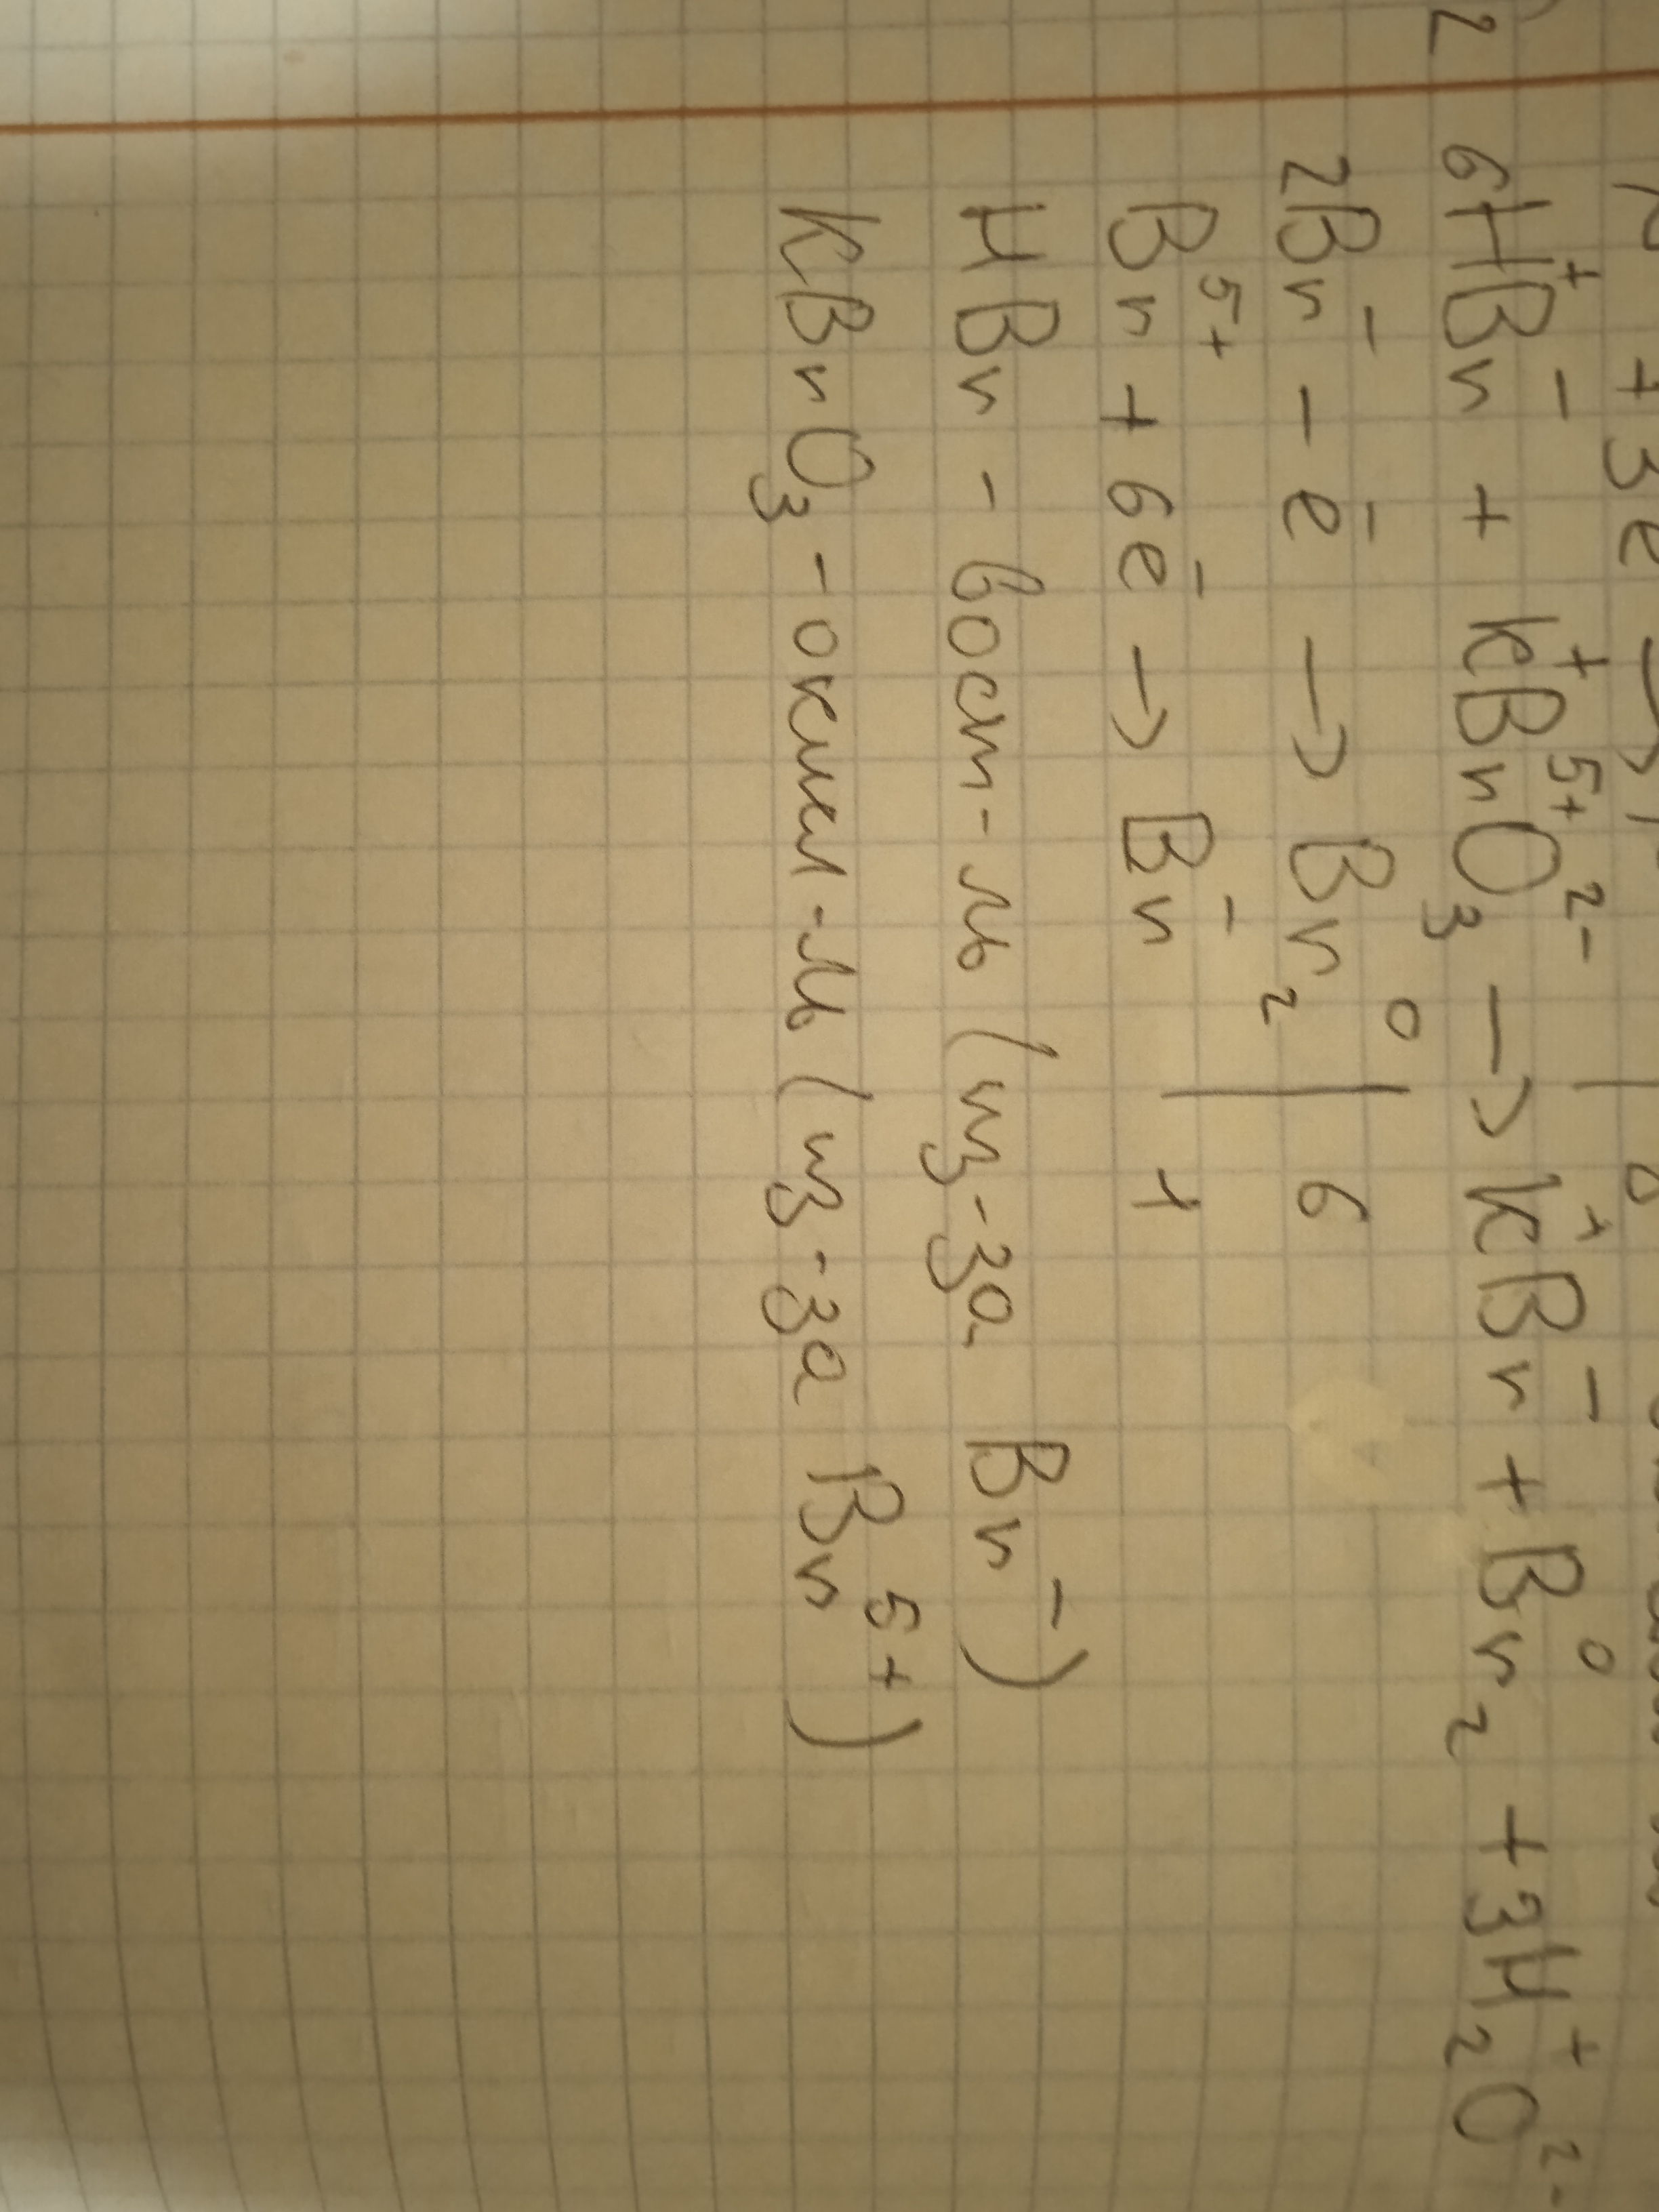 + 3e →
2 6H⁺Br⁻ + K⁺Br⁵⁺O₃²⁻ → K⁺Br⁻ + Br₂⁰ + 3H₂⁺O²⁻
2Br⁻ - e⁻ → Br₂⁰ | 6
Br⁵⁺ + 6e⁻ → Br⁻ | 1
HBr - вост-ль (из-за Br⁻)
KBrO₃ - окисл-ль (из-за Br⁵⁺)